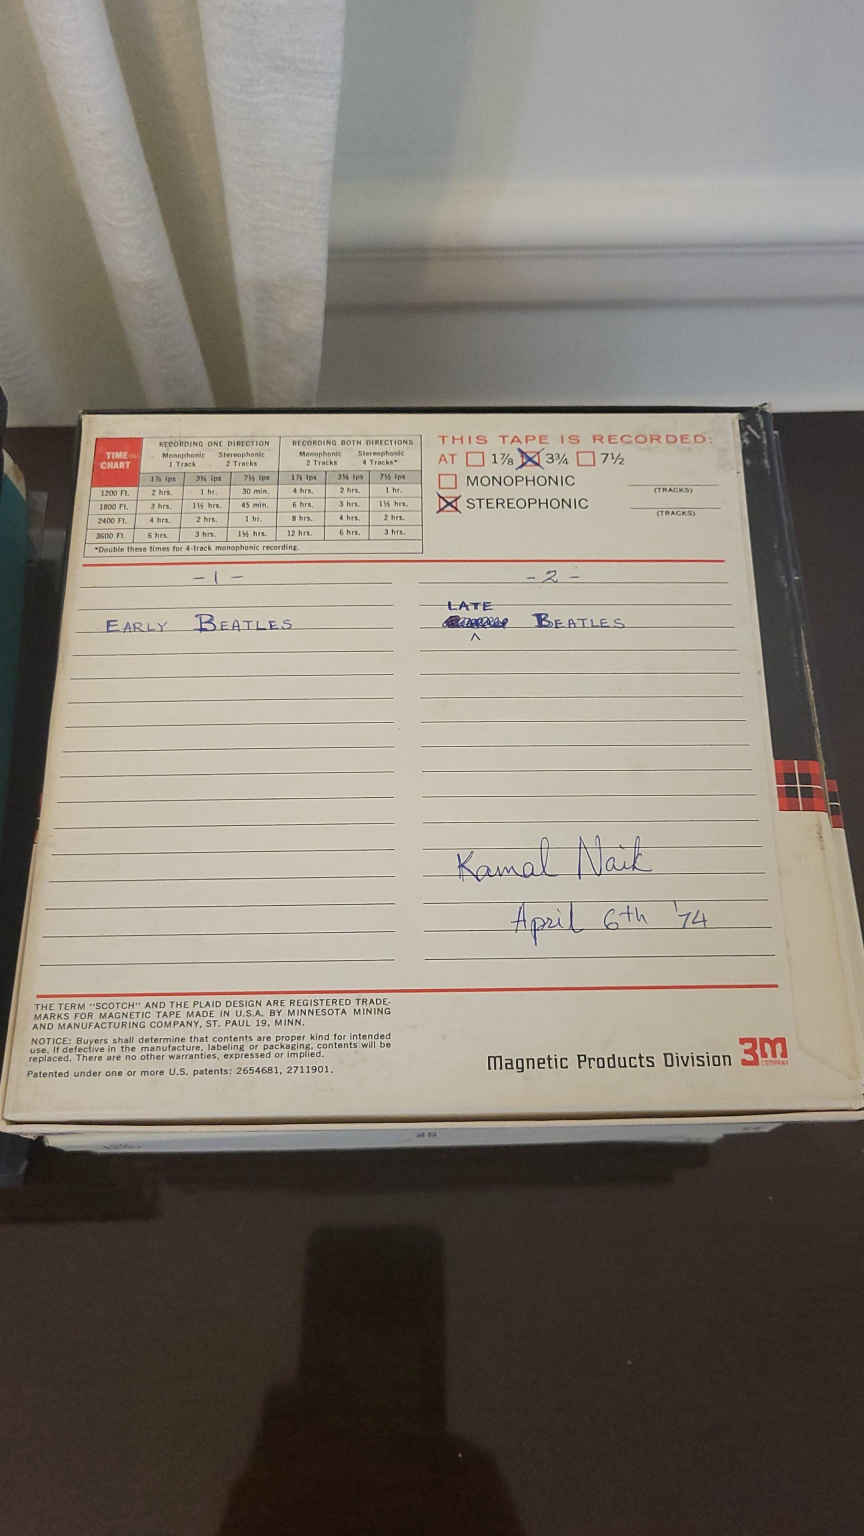 TIME
CHART
RECORDING ONE DIRECTION RECORDING BOTH DIRECTIONS
Monophonic Stereophonic Monophonic Stereophonic
1 Track 2 Tracks 2 Tracks 4 Tracks*
1⅞ ips 3¾ ips 7½ ips 1⅞ ips 3¾ ips 7½ ips
1200 Ft. 2 hrs. 1 hr. 30 min. 4 hrs. 2 hrs. 1 hr.
1800 Ft. 3 hrs. 1½ hrs. 45 min. 6 hrs. 3 hrs. 1½ hrs.
2400 Ft. 4 hrs. 2 hrs. 1 hr. 8 hrs. 4 hrs. 2 hrs.
3600 Ft. 6 hrs. 3 hrs. 1½ hrs. 12 hrs. 6 hrs. 3 hrs.
*Double these times for 4-track monophonic recording.
THIS TAPE IS RECORDED:
AT 1⅞ 3¾ 7½
MONOPHONIC
(TRACKS)
STEREOPHONIC
(TRACKS)
- 1 -
EARLY BEATLES
- 2 -
LATE
BEATLES
Kamal Naik
April 6th '74
THE TERM "SCOTCH" AND THE PLAID DESIGN ARE REGISTERED TRADE-
MARKS FOR MAGNETIC TAPE MADE IN U.S.A. BY MINNESOTA MINING
AND MANUFACTURING COMPANY, ST. PAUL 19, MINN.
NOTICE: Buyers shall determine that contents are proper kind for intended
use. If defective in the manufacture, labeling or packaging, contents will be
replaced. There are no other warranties, expressed or implied.
Patented under one or more U.S. patents: 2654681, 2711901.
Magnetic Products Division 3M
COMPANY